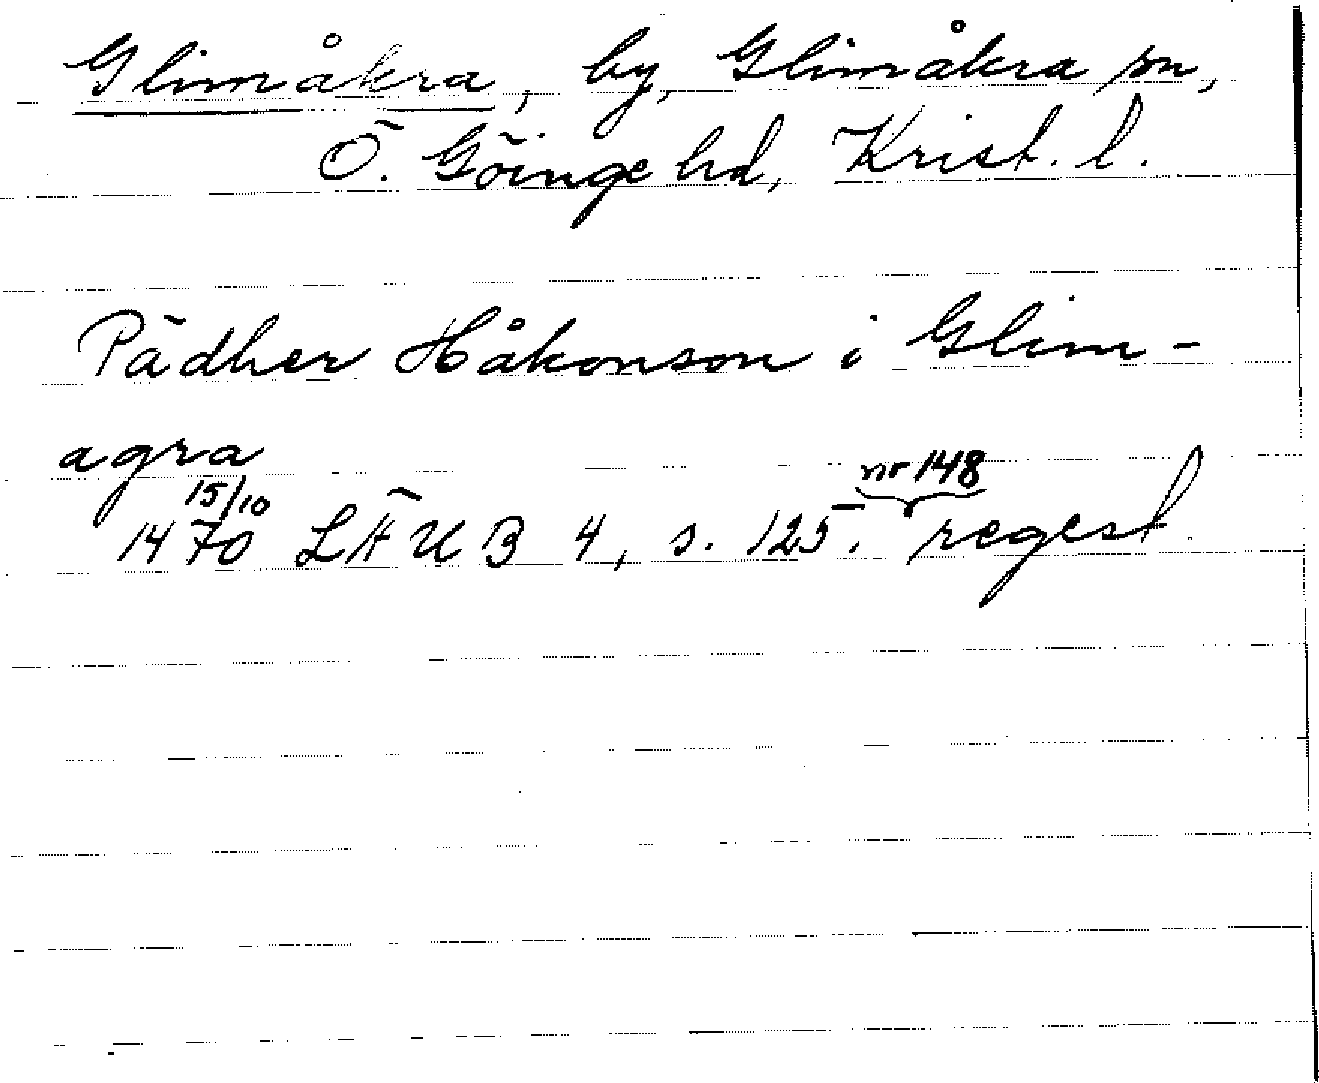 Glimåkra, by, Glimåkra sn,
Ö. Göinge hd, Krist. l.
Pädher Håkonson i Glim-
agra
15/10 nr 148
1470 LÄUB 4, s. 125. regest